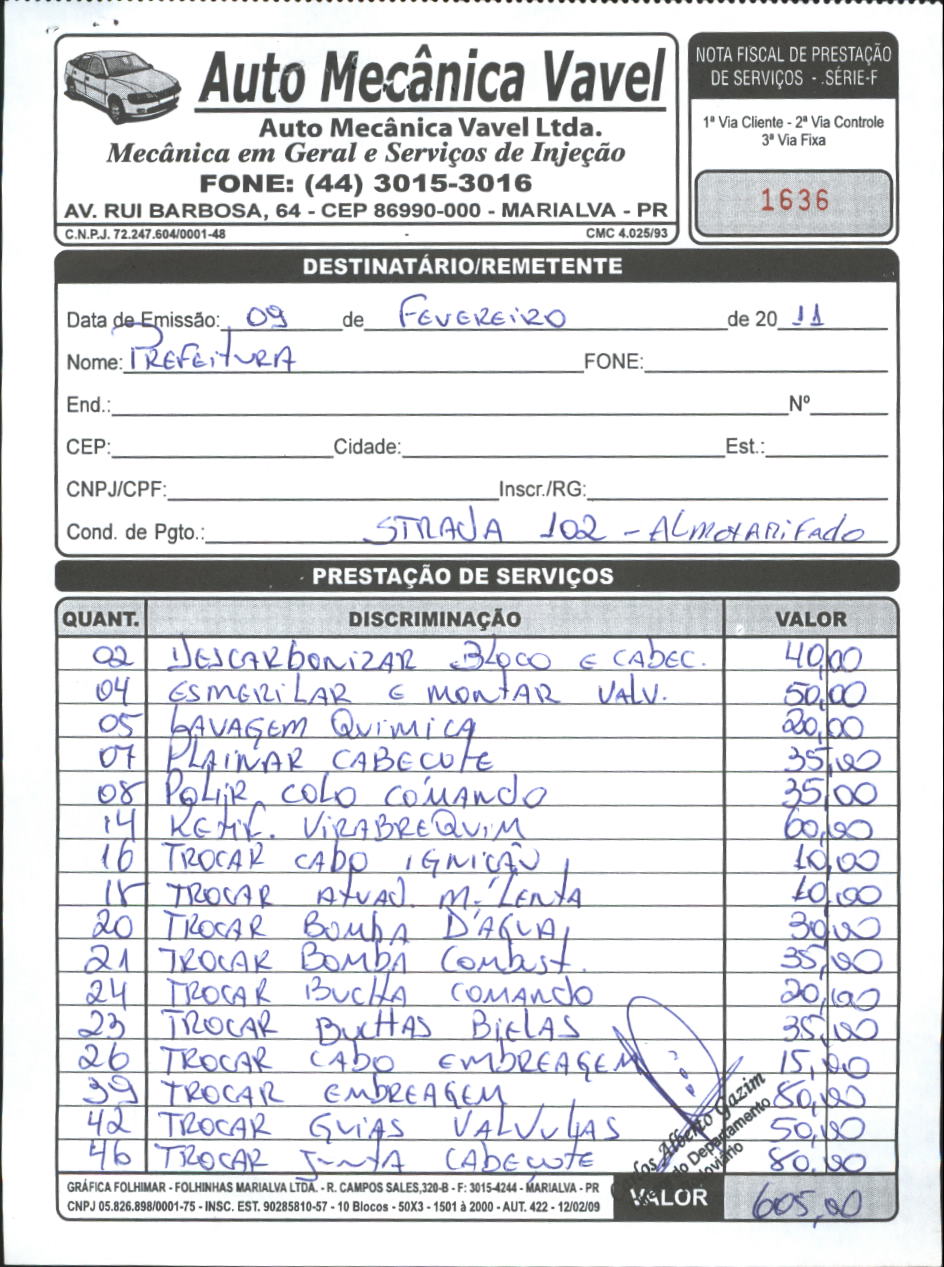 Auto Mecânica Vavel
Auto Mecânica Vavel Ltda.
Mecânica em Geral e Serviços de Injeção
FONE: (44) 3015-3016
AV. RUI BARBOSA, 64 - CEP 86990-000 - MARIALVA - PR
C.N.P.J. 72.247.604/0001-48 - CMC 4.025/93
NOTA FISCAL DE PRESTAÇÃO
DE SERVIÇOS - SÉRIE-F
1ª Via Cliente - 2ª Via Controle
3ª Via Fixa
1636
DESTINATÁRIO/REMETENTE
Data de Emissão: 09 de FEVEREIRO de 20 11
Nome: PREFEITURA FONE:
End.: Nº
CEP: Cidade: Est.:
CNPJ/CPF: Inscr./RG:
Cond. de Pgto.: STRADA 102 - ALMOXARIFADO
PRESTAÇÃO DE SERVIÇOS
QUANT. DISCRIMINAÇÃO VALOR
02 DESCARBONIZAR BLOCO E CABEC. 40,00
04 ESMERILAR E MONTAR VALV. 50,00
05 LAVAGEM QUIMICA 20,00
07 PLAINAR CABECOTE 35,00
08 POLIR COLO COMANDO 35,00
14 RETIF. VIRABREQUIM 60,00
16 TROCAR CABO IGNIÇÃO 10,00
18 TROCAR ATUAD. M. LENTA 10,00
20 TROCAR BOMBA D'ÁGUA 30,00
21 TROCAR BOMBA COMBUST. 35,00
24 TROCAR BUCHA COMANDO 20,00
23 TROCAR BUCHAS BIELAS 35,00
26 TROCAR CABO EMBREAGEM 15,00
39 TROCAR EMBREAGEM 80,00
42 TROCAR GUIAS VALVULAS 50,00
46 TROCAR JUNTA CABEÇOTE 80,00
Alberto Gazim
do Departamento
GRÁFICA FOLHIMAR - FOLHINHAS MARIALVA LTDA. - R. CAMPOS SALES,320-B - F: 3015-4244 - MARIALVA - PR
CNPJ 05.826.898/0001-75 - INSC. EST. 90285810-57 - 10 Blocos - 50X3 - 1501 à 2000 - AUT. 422 - 12/02/09
VALOR 605,00